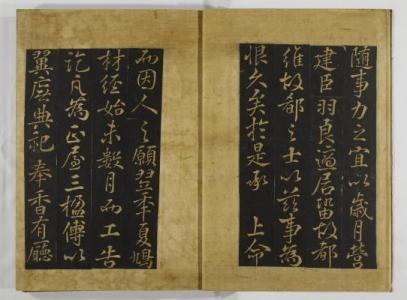 随事力之宜以歲月營
建臣羽良適居留故都
維故都之士以茲事為
恨久矣於是承　上命
而因人之願翌年夏鳩
材經始未數月而工告
訖凡為正屋三楹傅以
翼庑典祀奉香有廳